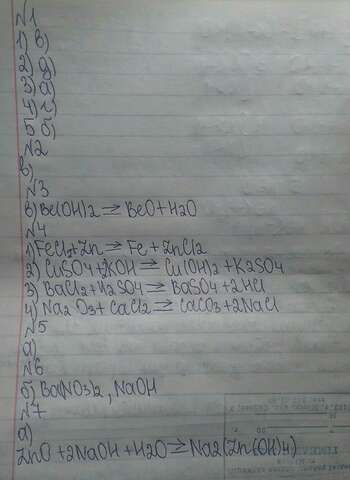 №1
1) в)
2) д)
3) а)
4) г)
5 б)
№2
в)
№3
в) Be(OH)2 ⇌ BeO + H2O
№4
1) FeCl2 + Zn ⇌ Fe + ZnCl2
2) CuSO4 + 2KOH ⇌ Cu(OH)2 + K2SO4
3) BaCl2 + H2SO4 ⇌ BaSO4 + 2HCl
4) Na2O3 + CaCl2 ⇌ CaCO3 + 2NaCl
№5
а)
№6
б) Ba(NO3)2, NaOH
№7
а)
ZnO + 2NaOH + H2O ⇌ Na2(Zn(OH)4)